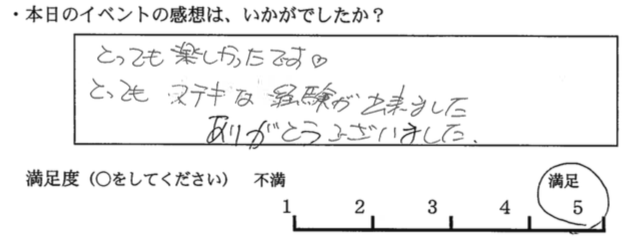 ・本日のイベントの感想は、いかがでしたか？
とっても楽しかったです♡
とっても ステキな 経験が出来ました
ありがとうございました.
満足度（○をしてください） 不満 満足
1 2 3 4 5